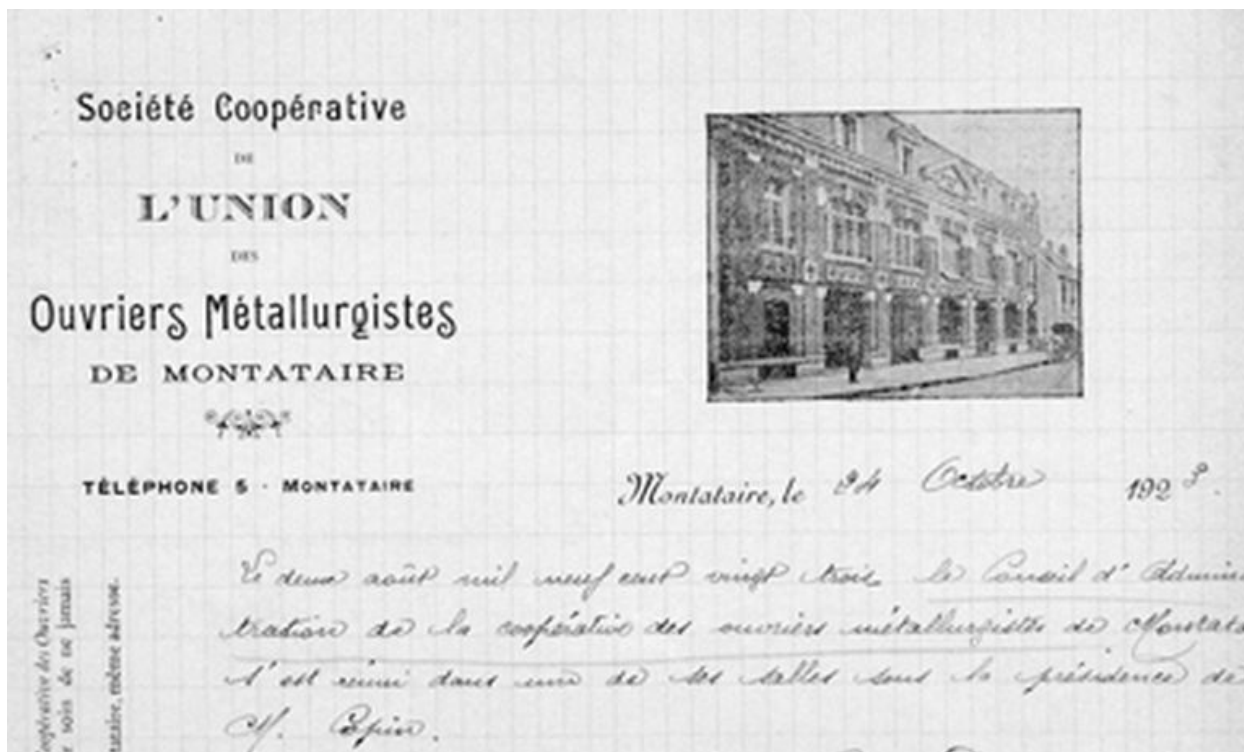 Société Coopérative
DE
L'UNION
DES
Ouvriers Métallurgistes
DE MONTATAIRE
TÉLÉPHONE 5 - MONTATAIRE
Montataire, le 24 Octobre 1923.
Le deux août mil neuf cent vingt trois le Conseil d'Admin
tration de la coopérative des ouvriers métallurgistes de Montata
s'est réuni dans une de ses salles sous la présidence de
M. Copin.
oopérative des Ouvriers
soin de ne jamais
tataire, même adresse.